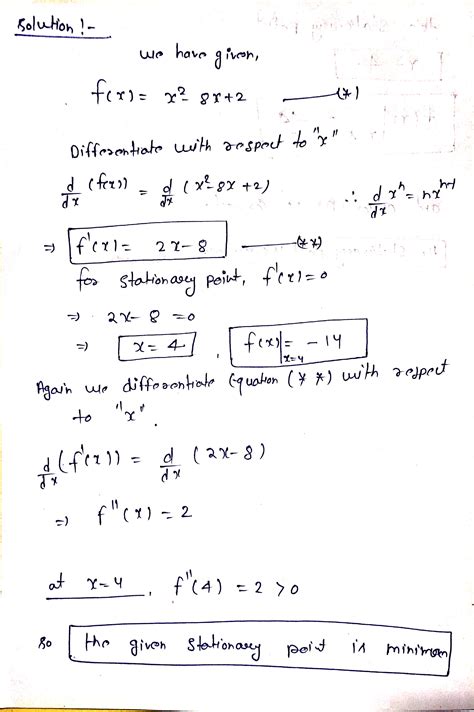 Solution :-
we have given,
f(x) = x² - 8x + 2 ——— (*)
Differentiate with respect to "x"
d/dx (f(x)) = d/dx (x² - 8x + 2) ∴ d/dx xⁿ = nxⁿ⁻¹
⇒ f'(x) = 2x - 8 ——— (**)
for stationary point, f'(x) = 0
⇒ 2x - 8 = 0
⇒ x = 4 , f(x)|ₓ₌₄ = -14
Again we differentiate Equation (**) with respect
to "x".
d/dx (f'(x)) = d/dx (2x - 8)
⇒ f''(x) = 2
at x = 4, f''(4) = 2 > 0
so the given stationary point is minimum